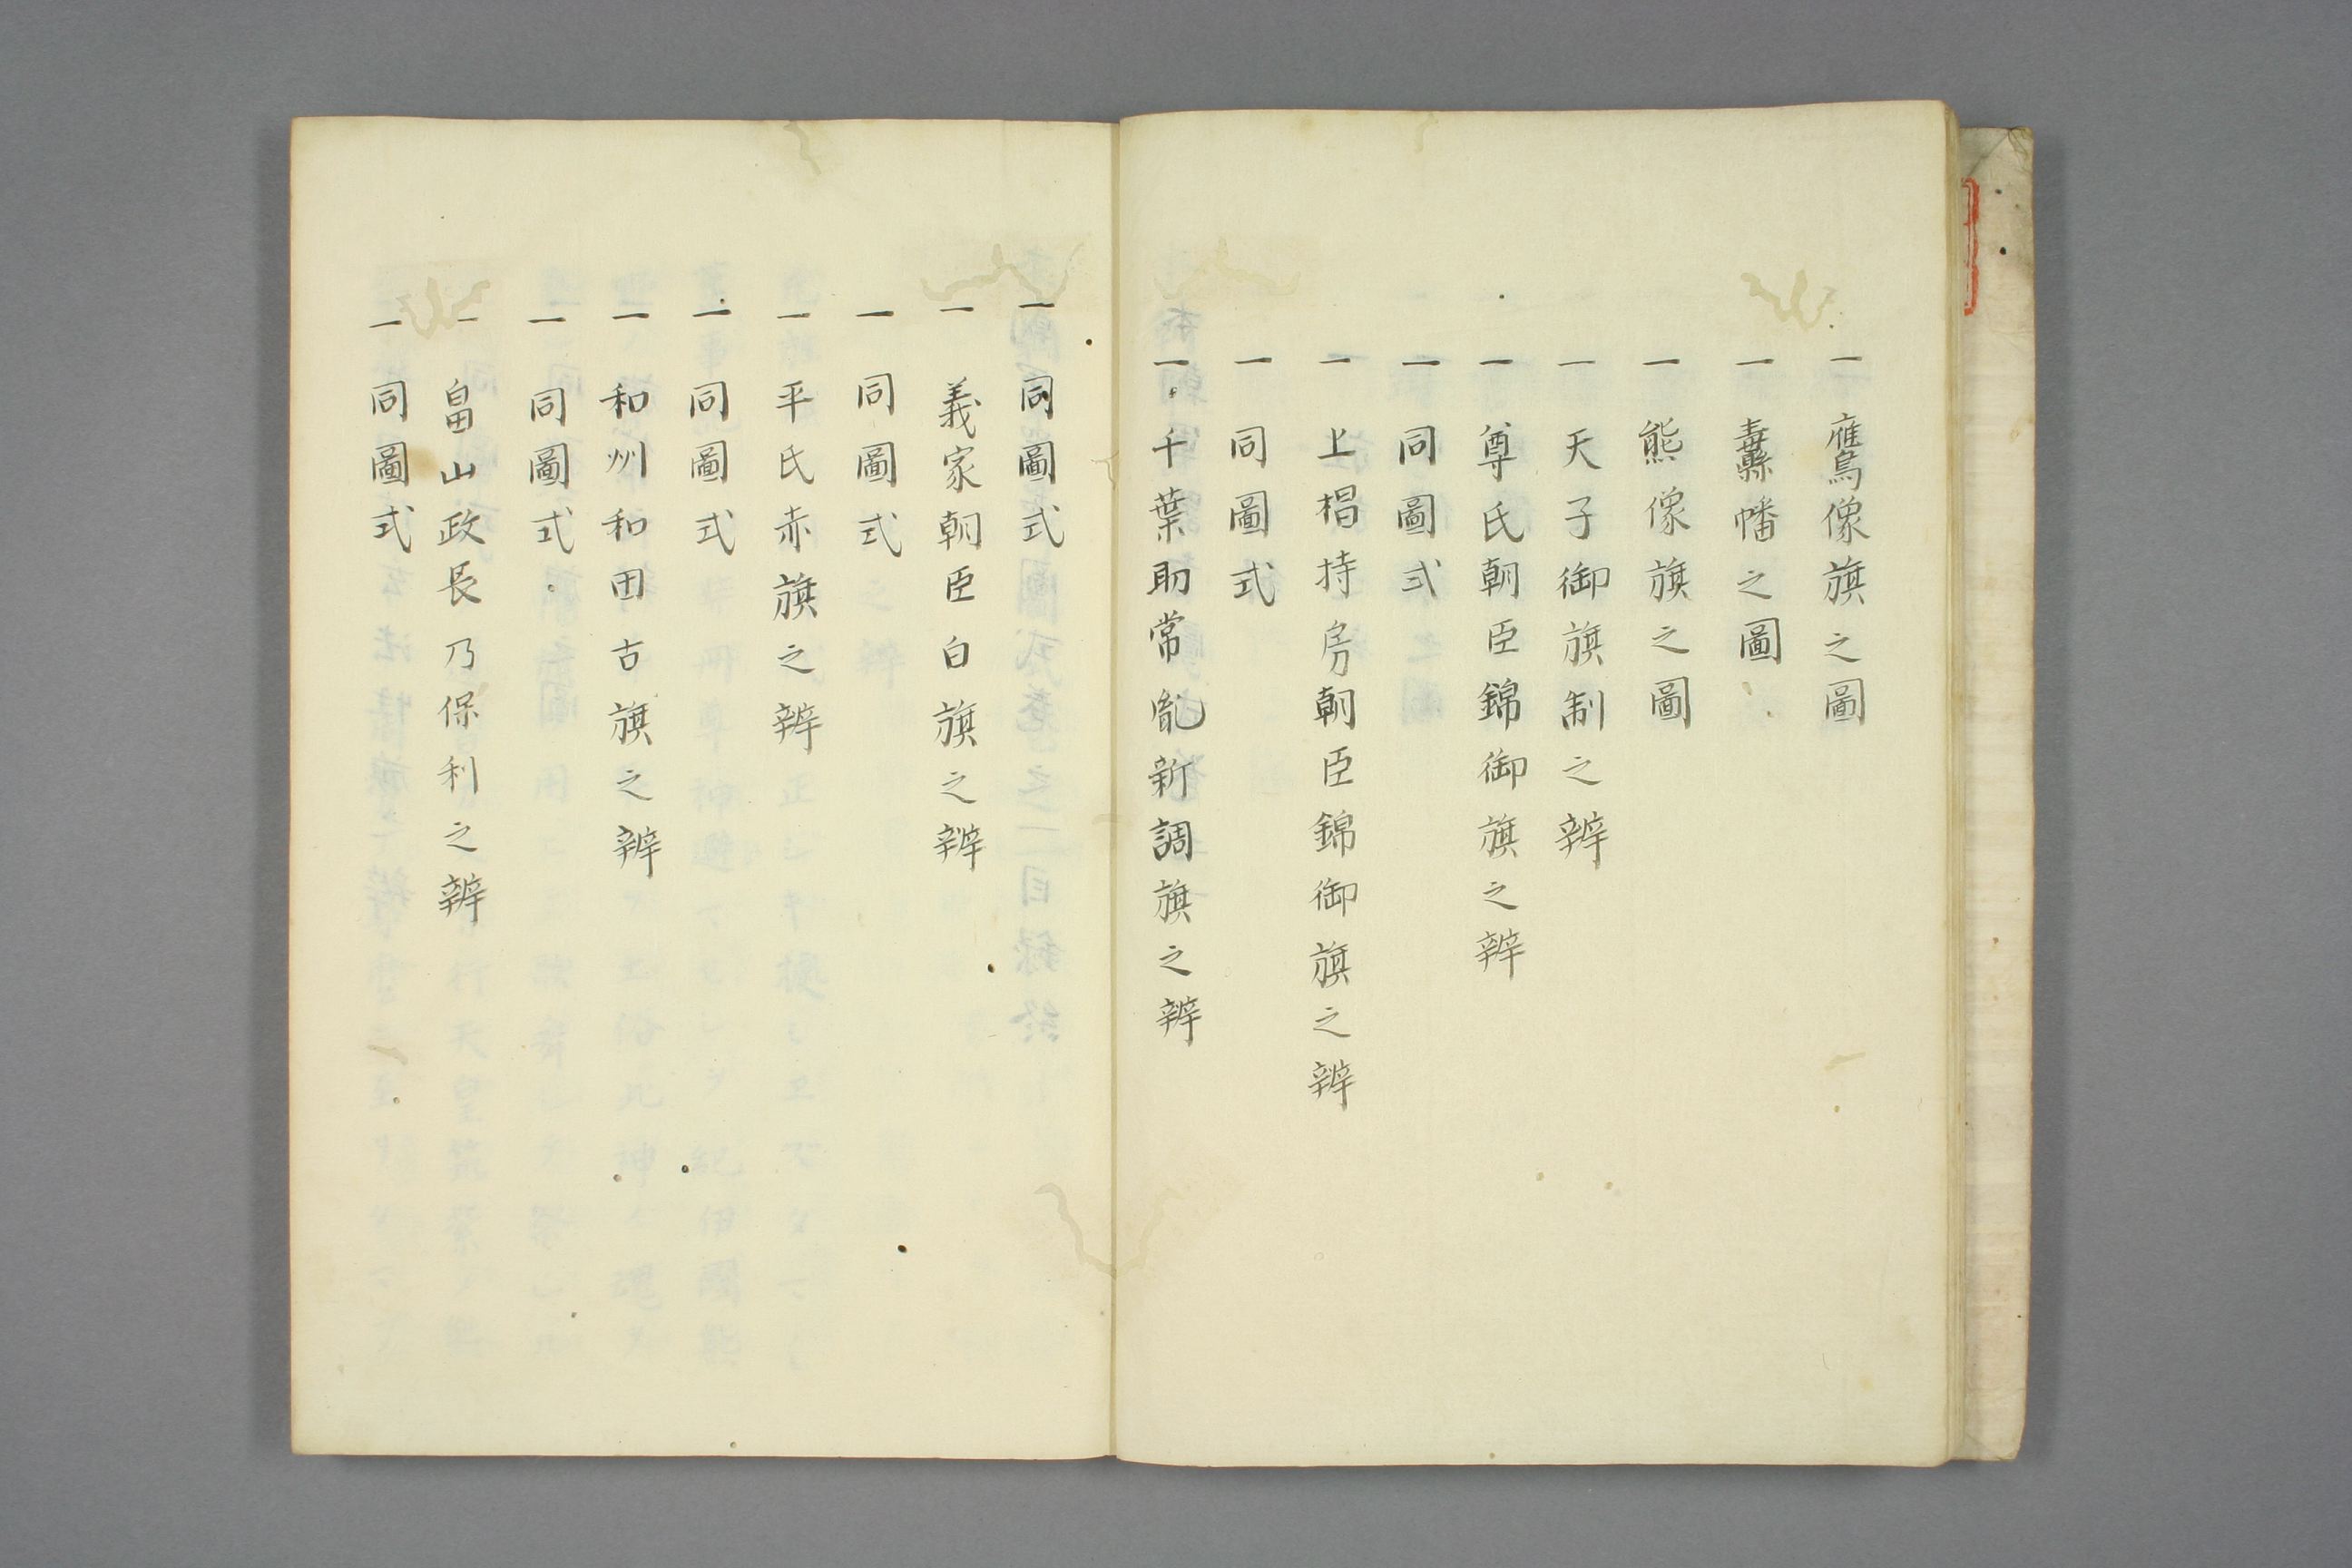 一 鷹像旗之圖
一 纛幡之圖
一 熊像旗之圖
一 天子御旗制之辨
一 尊氏朝臣錦御旗之辨
一 同圖式
一 上椙持房朝臣錦御旗之辨
一 同圖式
一 千葉助常胤新調旗之辨
一 同圖式
一 義家朝臣白旗之辨
一 同圖式
一 平氏赤旗之辨
一 同圖式
一 和州和田古旗之辨
一 同圖式
一 畠山政長乃保利之辨
一 同圖式